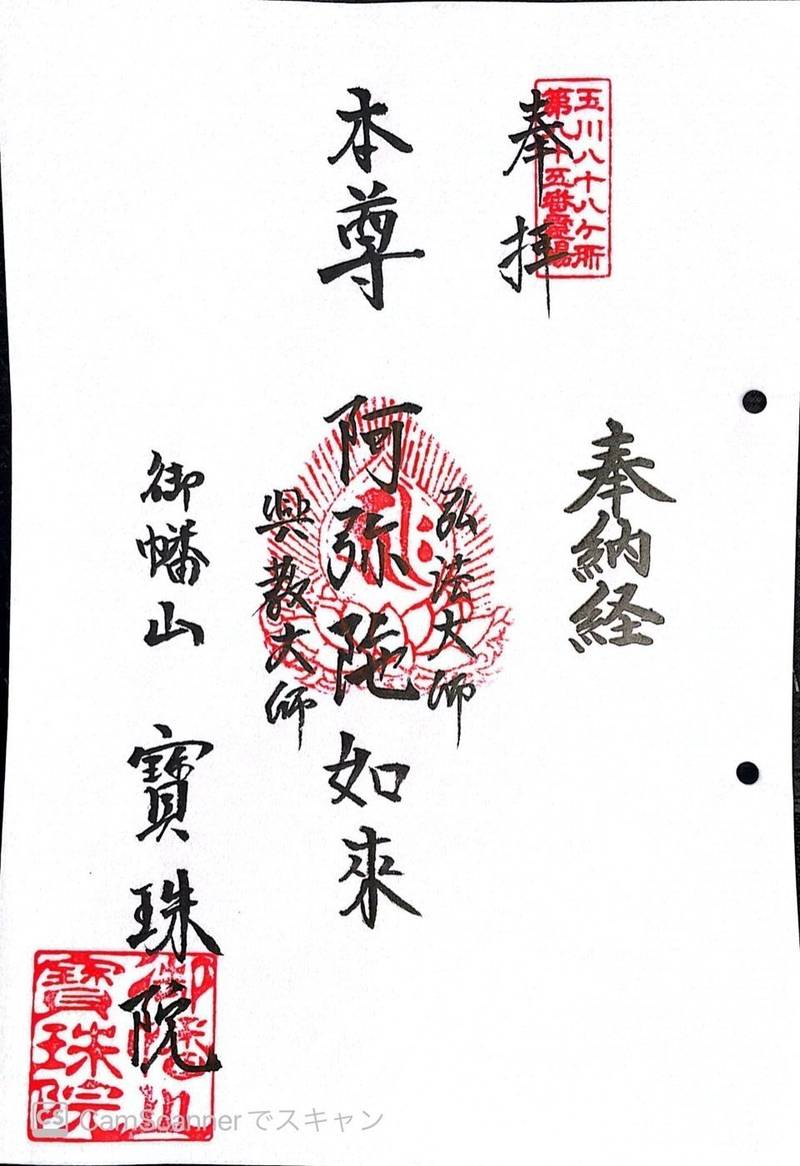 奉拝
玉川八十八ケ所
第八十五番霊場
奉納経
本尊 阿弥陀如來
弘法大師
興教大師
御幡山 寶珠院
御幡山
寶珠院
CS CamScannerでスキャン